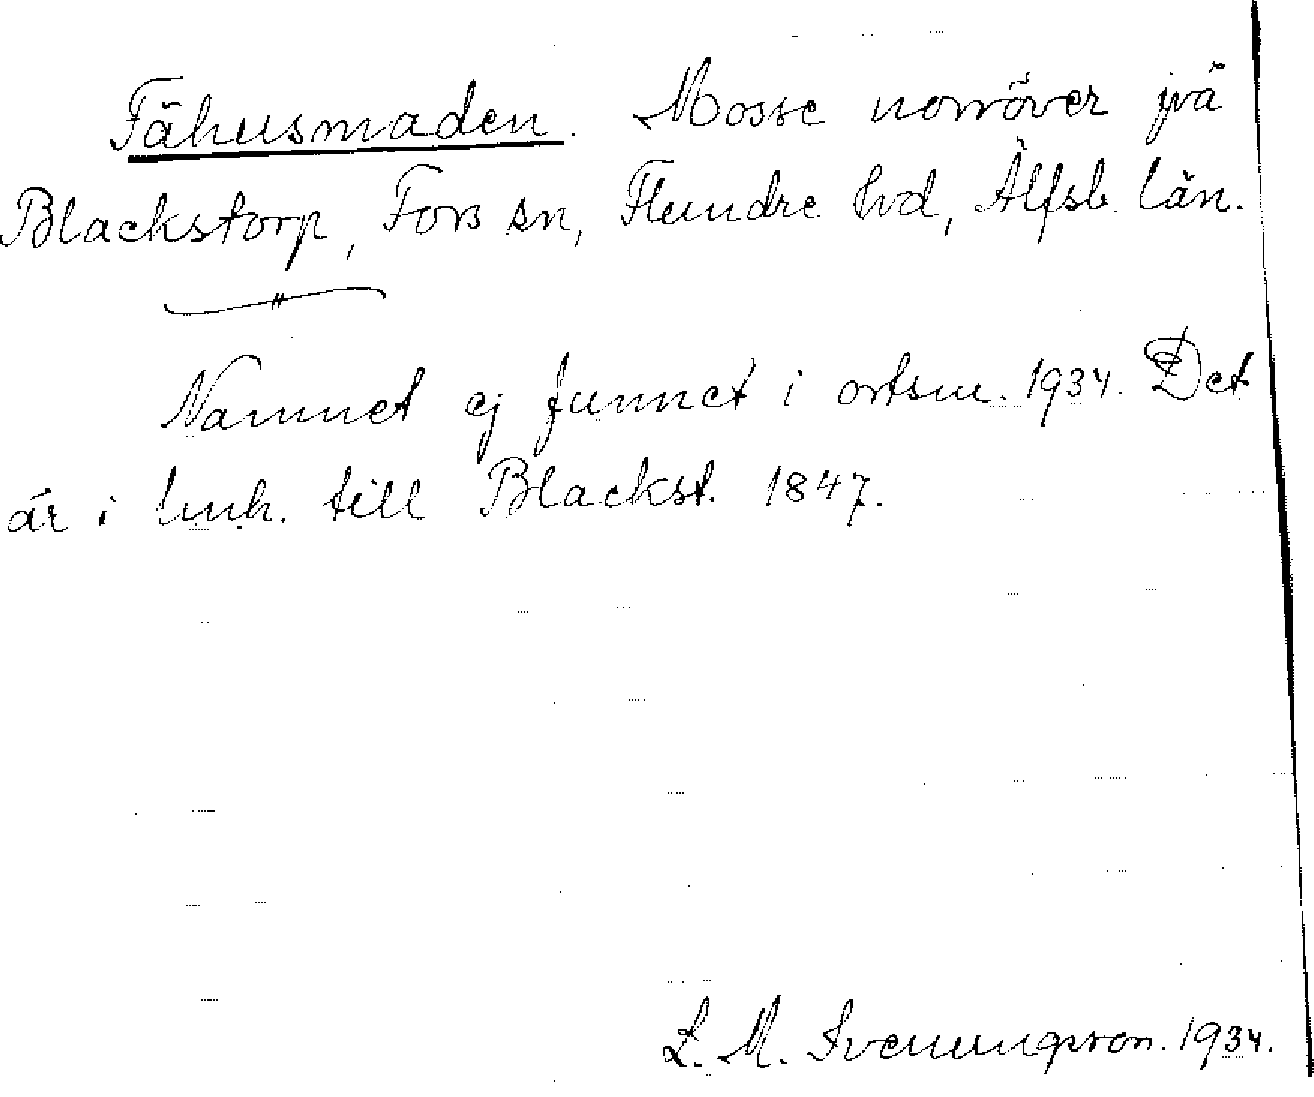 Fähusmaden. Mosse norröver på
Blackstorp, Fors sn, Flundre hd, Älfsb. län.
Namnet ej funnet i ortsm. 1934. Det
är i lmh. till Blackst. 1847.
L. M. Svenungsson. 1934.